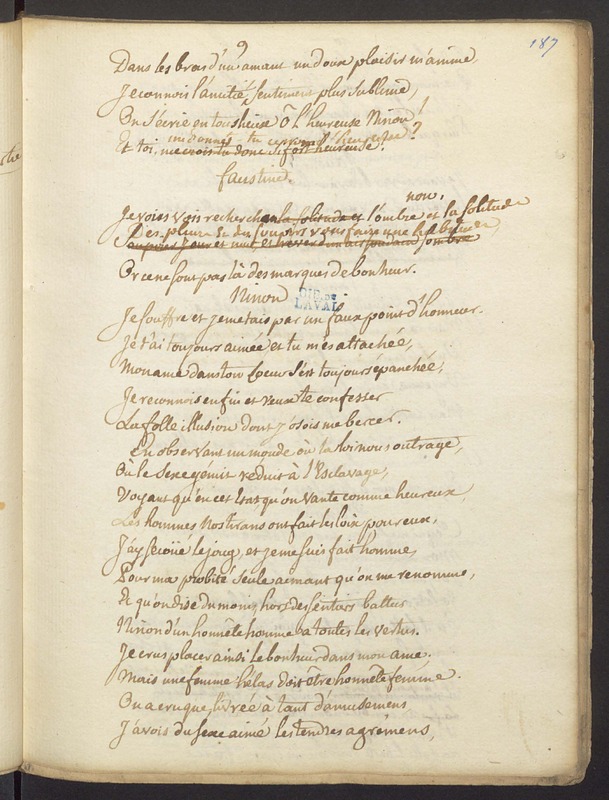 187
Dans les bras d'un amant un doux plaisir m'anime
Je connois l'amitié, sentiment plus sublime,
On s'écrie en tous lieux ô l'heureuse Ninon!
Et toi, me connois tu
me crois tu donc si fort heureuse?
faustine.
non,
Je vois vais rechercher la solitude et l'ombre et la solitude
Des pleurs et des soupirs vous faire une habitude,
soupirer jour et nuit et rêver d'un air sombre
Or ce ne sont pas là des marques de bonheur.
Ninon
BIB. DE
LAVAL
Je souffre et je me tais par un faux point d'honneur.
Je t'ai toujours aimée et tu m'es attachée,
Mon ame dans ton coeur s'est toujours épanchée,
Je reconnois enfin et veux te confesser
La folle illusion dont j'osois me bercer.
En observant un monde où la loi nous outrage,
Où le sexe gémit reduit à l'Esclavage,
Voyant qu'en cet Etat qu'on vante comme heureux,
Les hommes nos tirans ont fait les loix pour eux,
J'ay secoüé le joug, et je me suis fait homme,
Pour ma probité seule aimant qu'on me renomme,
Et qu'on dise du moins, hors des sentiers battus
Ninon d'un honnête homme a toutes les vertus.
Je crus placer ainsi le bonheur dans mon ame.
Mais une femme hélas doit être honnête femme.
On a cru que, livrée à tant d'amusemens,
J'avois du sexe aimé les tendres agrémens,